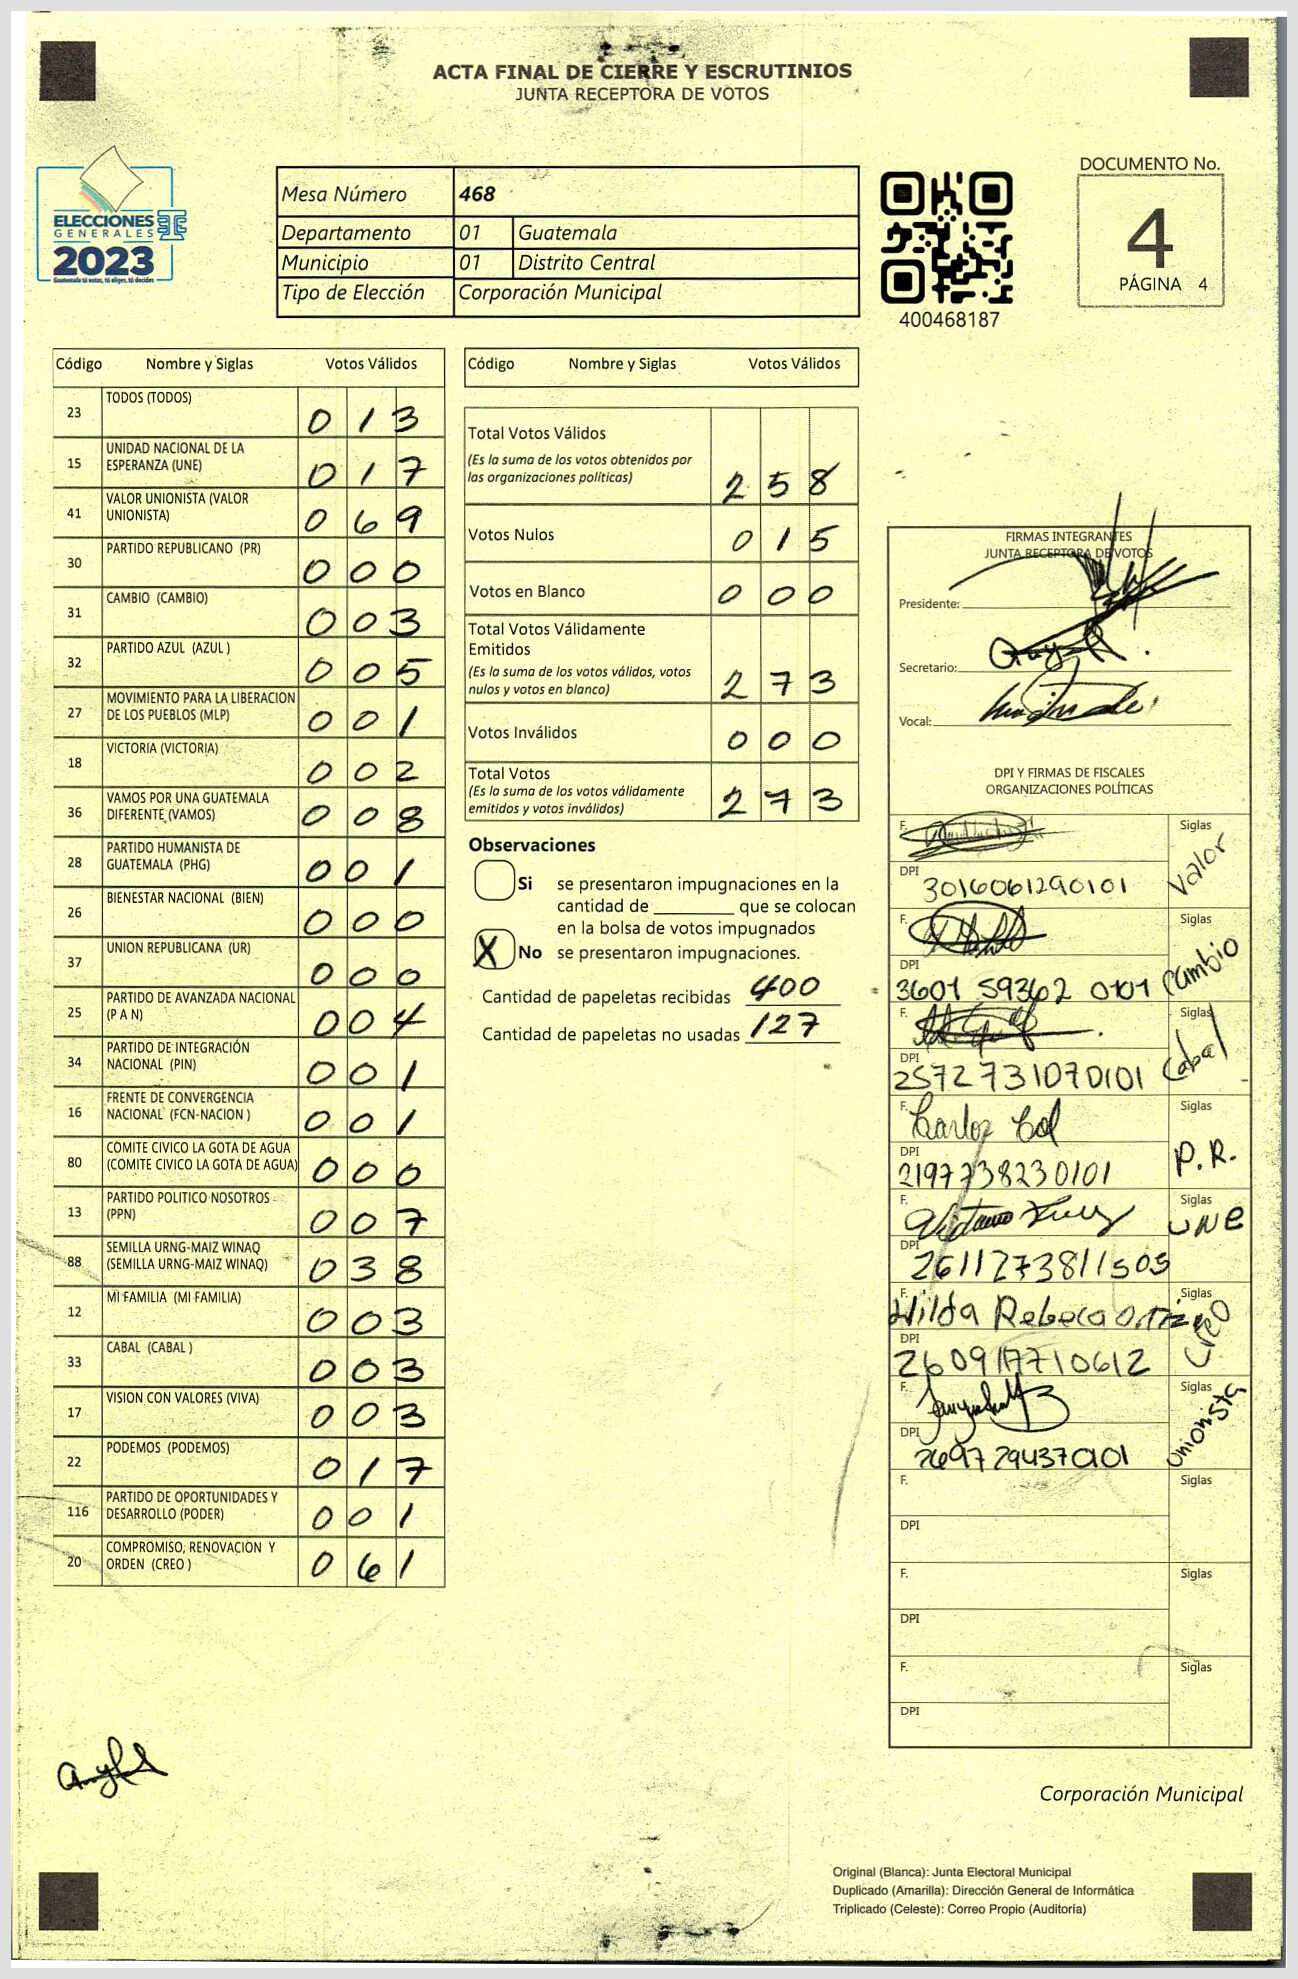 ACTA FINAL DE CIERRE Y ESCRUTINIOS
JUNTA RECEPTORA DE VOTOS
ELECCIONES
GENERALES
2023
Guatemala tú votas, tú eliges, tú decides
Mesa Número 468
Departamento 01 Guatemala
Municipio 01 Distrito Central
Tipo de Elección Corporación Municipal
400468187
DOCUMENTO No.
4
PÁGINA 4
Código Nombre y Siglas Votos Válidos
23 TODOS (TODOS) 0 1 3
15 UNIDAD NACIONAL DE LA
ESPERANZA (UNE) 0 1 7
41 VALOR UNIONISTA (VALOR
UNIONISTA) 0 6 9
30 PARTIDO REPUBLICANO (PR) 0 0 0
31 CAMBIO (CAMBIO) 0 0 3
32 PARTIDO AZUL (AZUL ) 0 0 5
27 MOVIMIENTO PARA LA LIBERACION
DE LOS PUEBLOS (MLP) 0 0 1
18 VICTORIA (VICTORIA) 0 0 2
36 VAMOS POR UNA GUATEMALA
DIFERENTE (VAMOS) 0 0 8
28 PARTIDO HUMANISTA DE
GUATEMALA (PHG) 0 0 1
26 BIENESTAR NACIONAL (BIEN) 0 0 0
37 UNION REPUBLICANA (UR) 0 0 0
25 PARTIDO DE AVANZADA NACIONAL
(P A N) 0 0 4
34 PARTIDO DE INTEGRACIÓN
NACIONAL (PIN) 0 0 1
16 FRENTE DE CONVERGENCIA
NACIONAL (FCN-NACION ) 0 0 1
80 COMITE CIVICO LA GOTA DE AGUA
(COMITE CIVICO LA GOTA DE AGUA) 0 0 0
13 PARTIDO POLITICO NOSOTROS
(PPN) 0 0 7
88 SEMILLA URNG-MAIZ WINAQ
(SEMILLA URNG-MAIZ WINAQ) 0 3 8
12 MI FAMILIA (MI FAMILIA) 0 0 3
33 CABAL (CABAL ) 0 0 3
17 VISION CON VALORES (VIVA) 0 0 3
22 PODEMOS (PODEMOS) 0 1 7
116 PARTIDO DE OPORTUNIDADES Y
DESARROLLO (PODER) 0 0 1
20 COMPROMISO, RENOVACION Y
ORDEN (CREO ) 0 6 1
Código Nombre y Siglas Votos Válidos
Total Votos Válidos
(Es la suma de los votos obtenidos por
las organizaciones políticas) 2 5 8
Votos Nulos 0 1 5
Votos en Blanco 0 0 0
Total Votos Válidamente
Emitidos
(Es la suma de los votos válidos, votos
nulos y votos en blanco) 2 7 3
Votos Inválidos 0 0 0
Total Votos
(Es la suma de los votos válidamente
emitidos y votos inválidos) 2 7 3
Observaciones
Si se presentaron impugnaciones en la
cantidad de ________ que se colocan
en la bolsa de votos impugnados
X No se presentaron impugnaciones.
Cantidad de papeletas recibidas 400
Cantidad de papeletas no usadas 127
FIRMAS INTEGRANTES
JUNTA RECEPTORA DE VOTOS
Presidente:
Secretario:
Vocal:
DPI Y FIRMAS DE FISCALES
ORGANIZACIONES POLÍTICAS
F. Siglas Valor
DPI 3016061290101
F. Siglas Cambio
DPI 3601 59362 0101
F. Siglas Cabal
DPI 2572731070101
F. Carlos Col Siglas P.R.
DPI 2197738230101
F. Siglas UNE
DPI 2611273811503
F. Hilda Rebeca Ortiz Siglas Creo
DPI 2609177710612
F. Siglas Unionista
DPI 2697294370101
F. Siglas
DPI
F. Siglas
DPI
F. Siglas
DPI
Corporación Municipal
Original (Blanca): Junta Electoral Municipal
Duplicado (Amarilla): Dirección General de Informática
Triplicado (Celeste): Correo Propio (Auditoría)